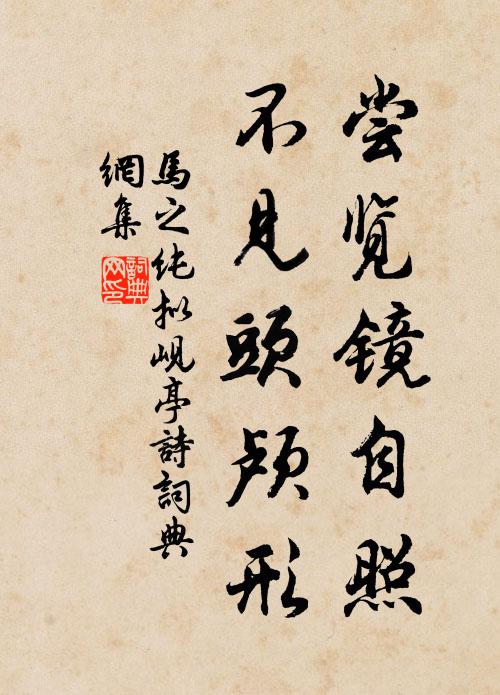 尝览镜自照
不见頭颅形
馬之纯拟岘亭詩詞典
網集
詞典
网印